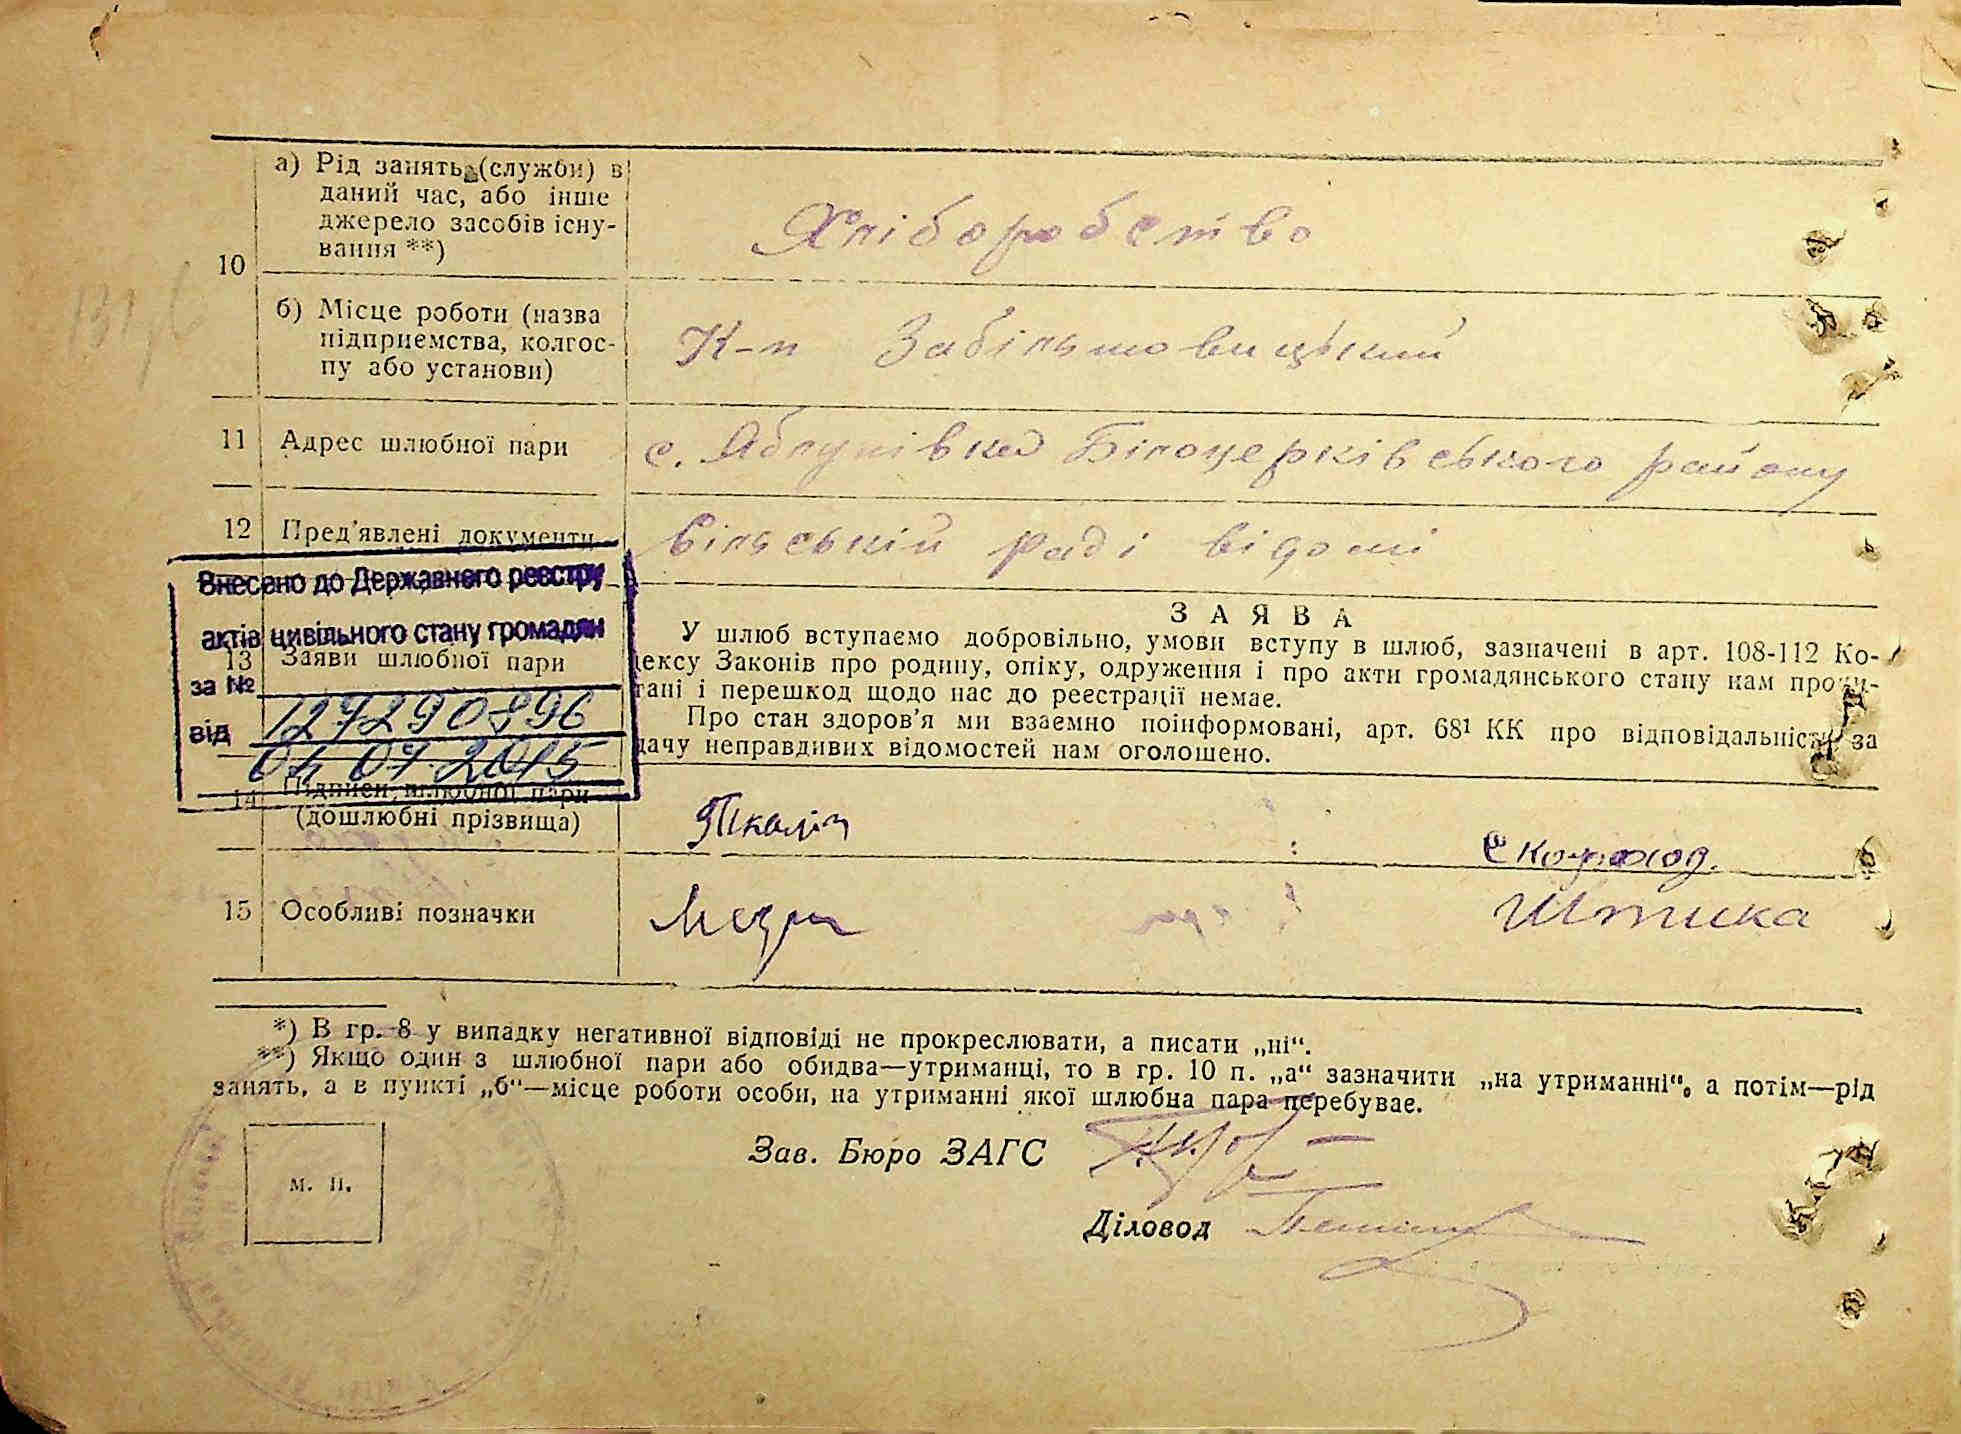 10
а) Рід занять (служби) в
даний час, або інше
джерело засобів існу-
вання **)
Хліборобство
б) Місце роботи (назва
підприємства, колгос-
пу або установи)
К-п Забільшовицький
11 Адрес шлюбної пари
с. Яблунівка Білоцерківського району
12 Пред'явлені документи
Сільській раді відомі
Внесено до Державного реєстру
актів цивільного стану громадян
за №
127290896
від
04 07 2015
13 Заяви шлюбної пари
ЗАЯВА
У шлюб вступаємо добровільно, умови вступу в шлюб, зазначені в арт. 108-112 Ко-
дексу Законів про родину, опіку, одруження і про акти громадянського стану нам прочи-
тані і перешкод щодо нас до реєстрації немає.
Про стан здоров'я ми взаємно поінформовані, арт. 68¹ КК про відповідальність за
дачу неправдивих відомостей нам оголошено.
14 Підписи шлюбної пари
(дошлюбні прізвища)
Скороход.
15 Особливі позначки
Штика
*) В гр. 8 у випадку негативної відповіді не прокреслювати, а писати „ні“.
**) Якщо один з шлюбної пари або обидва—утриманці, то в гр. 10 п. „а“ зазначити „на утриманні“, а потім—рід
занять, а в пункті „б“—місце роботи особи, на утриманні якої шлюбна пара перебуває.
Зав. Бюро ЗАГС
м. п.
Діловод